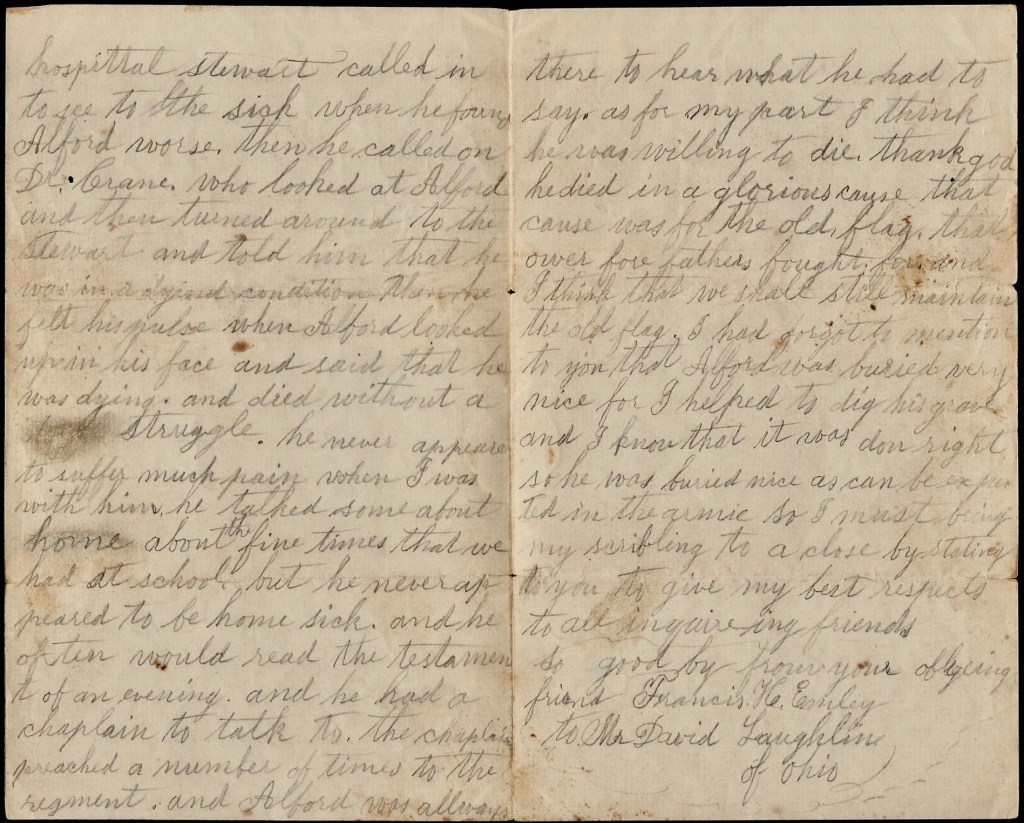 hospittal stewart called in
to see to the sick when he foun
Alford worse. then he called on
Dr. Crane. who looked at Alford
and then turned around to the
stewart and told him that he
was in a dying condition then he
felt his pulse when Alford looked
up in his face and said that he
was dying. and died without a
struggle. he never appeare
to suffer much pain when I was
with him, he talked some about
home about the fine times that we
had at school. but he never ap
peared to be home sick. and he
often would read the testamen
t of an evening. and he had a
chaplain to talk to. the chaplain
preached a number of times to the
regment. and Alford was allways
there to hear what he had to
say. as for my part I think
he was willing to die. thank god
he died in a glorious cause that
cause was for the old flag. that
ower fore fathers fought for. and
I think that we shall still maintain
the old flag. I had forgot to mention
to you that Alford was buried very
nice for I helped to dig his grave
and I know that it was don right
so he was buried nice as can be expec
ted in the armie so I must bring
my scribling to a close by stating
to you to give my best respects
to all inquire ing friends
so good by from your oblgeing
friend Francis. H. Emley
to. Mr David Laughlin
of Ohio